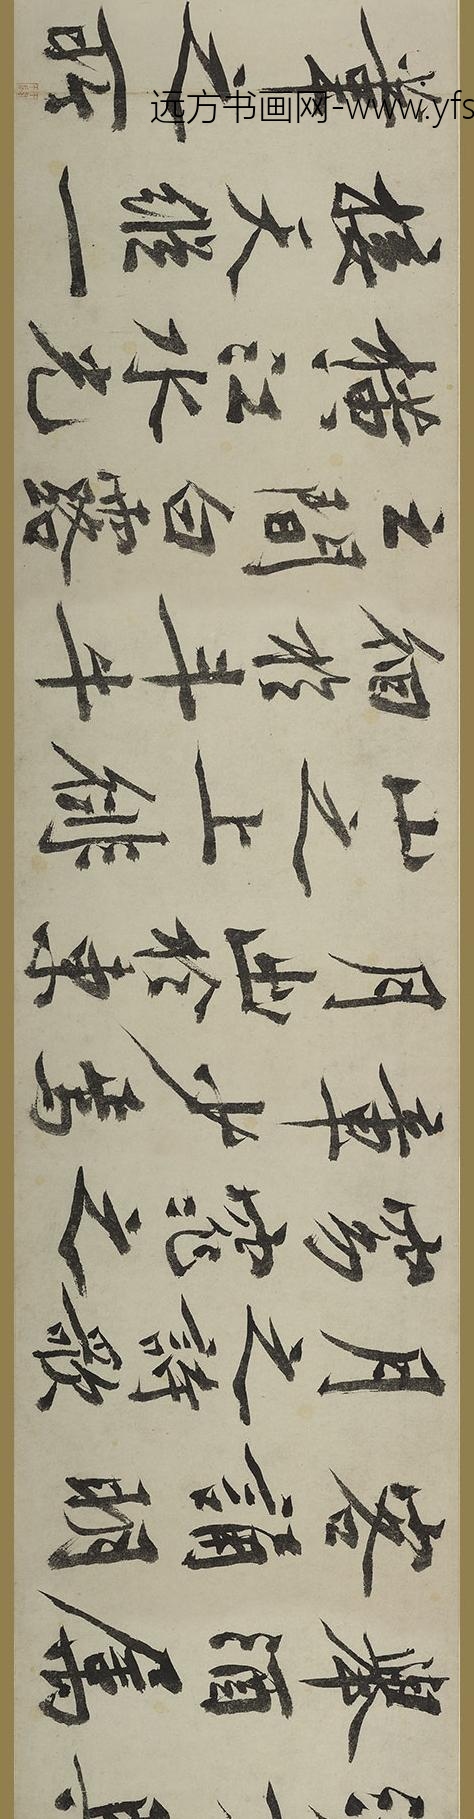 舉酒屬
客誦明
月之詩歌
窈窕之
章少焉
月出於東
山之上徘
徊於斗牛
之間白露
橫江水光
接天縱一
葦之所
远方书画网-www.yfs